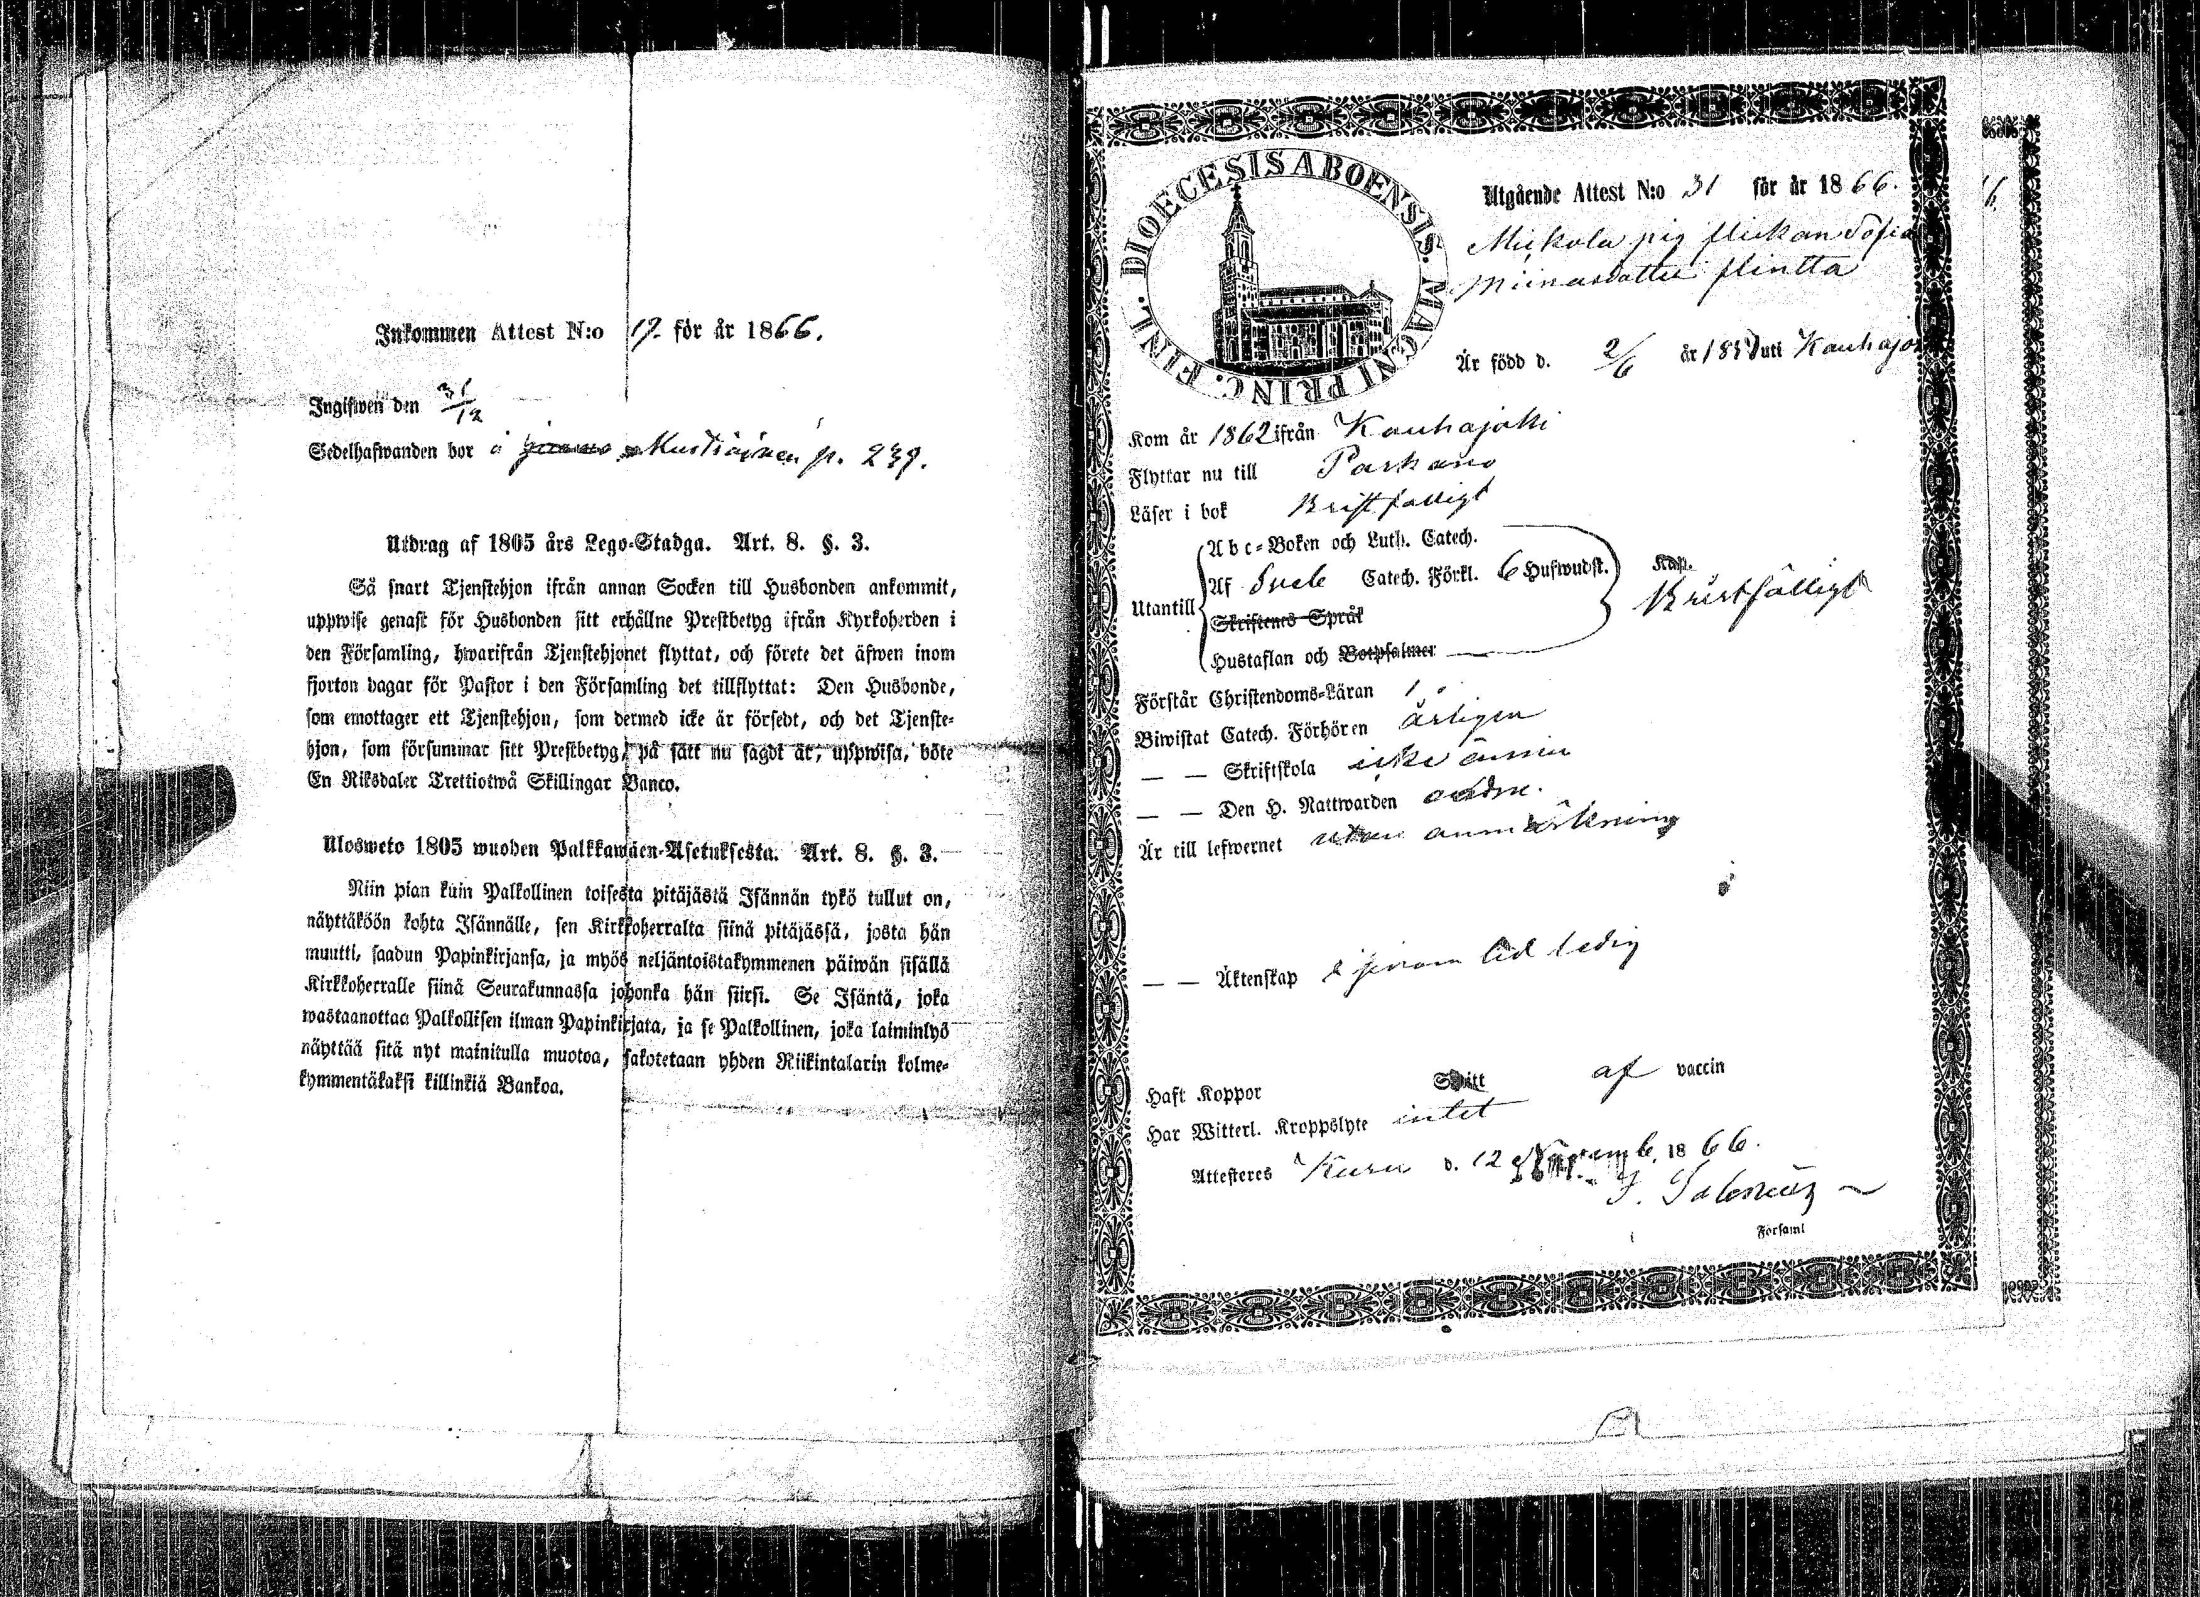 Inkommen Attest N:o 19. för år 1866.
Ingifwen den 31/12
Sedelhafwanden bor å p. 239.
Utdrag af 1805 års Lego-Stadga. Art. 8. §. 3.
Så snart Tjenstehjon ifrån annan Socken till Husbonden ankommit,
uppwise genast för Husbonden sitt erhållne Prestbetyg ifrån Kyrkoherden i
den Församling, hwarifrån Tjenstehjonet flyttat, och förete det äfwen inom
fjorton dagar för Pastor i den Församling det tillflyttat: Den Husbonde,
som emottager ett Tjenstehjon, som dermed icke är försedt, och det Tjenste-
hjon, som försummar sitt Prestbetyg, på sätt nu sagdt är, uppwisa, böte
En Riksdaler Trettiotwå Skillingar Banco.
Ulosweto 1805 wuoden Palkkawäen-Asetuksesta. Art. 8. §. 3.
Niin pian kuin Palkollinen toisesta pitäjästä Isännän tykö tullut on,
näyttäköön kohta Isännälle, sen Kirkkoherralta siinä pitäjässä, josta hän
muutti, saadun Papinkirjansa, ja myös neljäntoistakymmenen päiwän sisällä
Kirkkoherralle siinä Seurakunnassa johonka hän siirsi. Se Isäntä, joka
wastaanottaa Palkollisen ilman Papinkirjata, ja se Palkollinen, joka laiminlyö
näyttää sitä nyt mainitulla muotoa, sakotetaan yhden Riikintalarin kolme-
kymmentäkaksi killinkiä Bankoa.
DIOECESIS ABOENSIS. MAGNI PRINC. FINL.
Utgående Attest N:o 31 för år 1866.
Mickola pig flickan Sofia
flintta
Är född d. 2/6 år 18 uti Kauhajo
Kom år 1862 ifrån Kauhajoki
Flyttar nu till Parkano
Läser i bok Bristfälligt
Abc-Boken och Luth. Catech.
Utantill
Af Sveb Catech. Förkl. 6 Hufwudst. Kap.
Bristfälligt
Skriftenes Språk
Hustaflan och Botpsalmer
Förstår Christendoms-Läran 1.
Biwistat Catech. Förhören årligen
— — Skriftskola icke ännu
— — Den H. Nattwarden
Är till lefwernet utan anmärkning
— — Äktenskap ledig
Haft Koppor af vaccin
Har Witterl. Kroppslyte intet
Attesteres Kuru d. 12 Novemb. 1866.
Församl